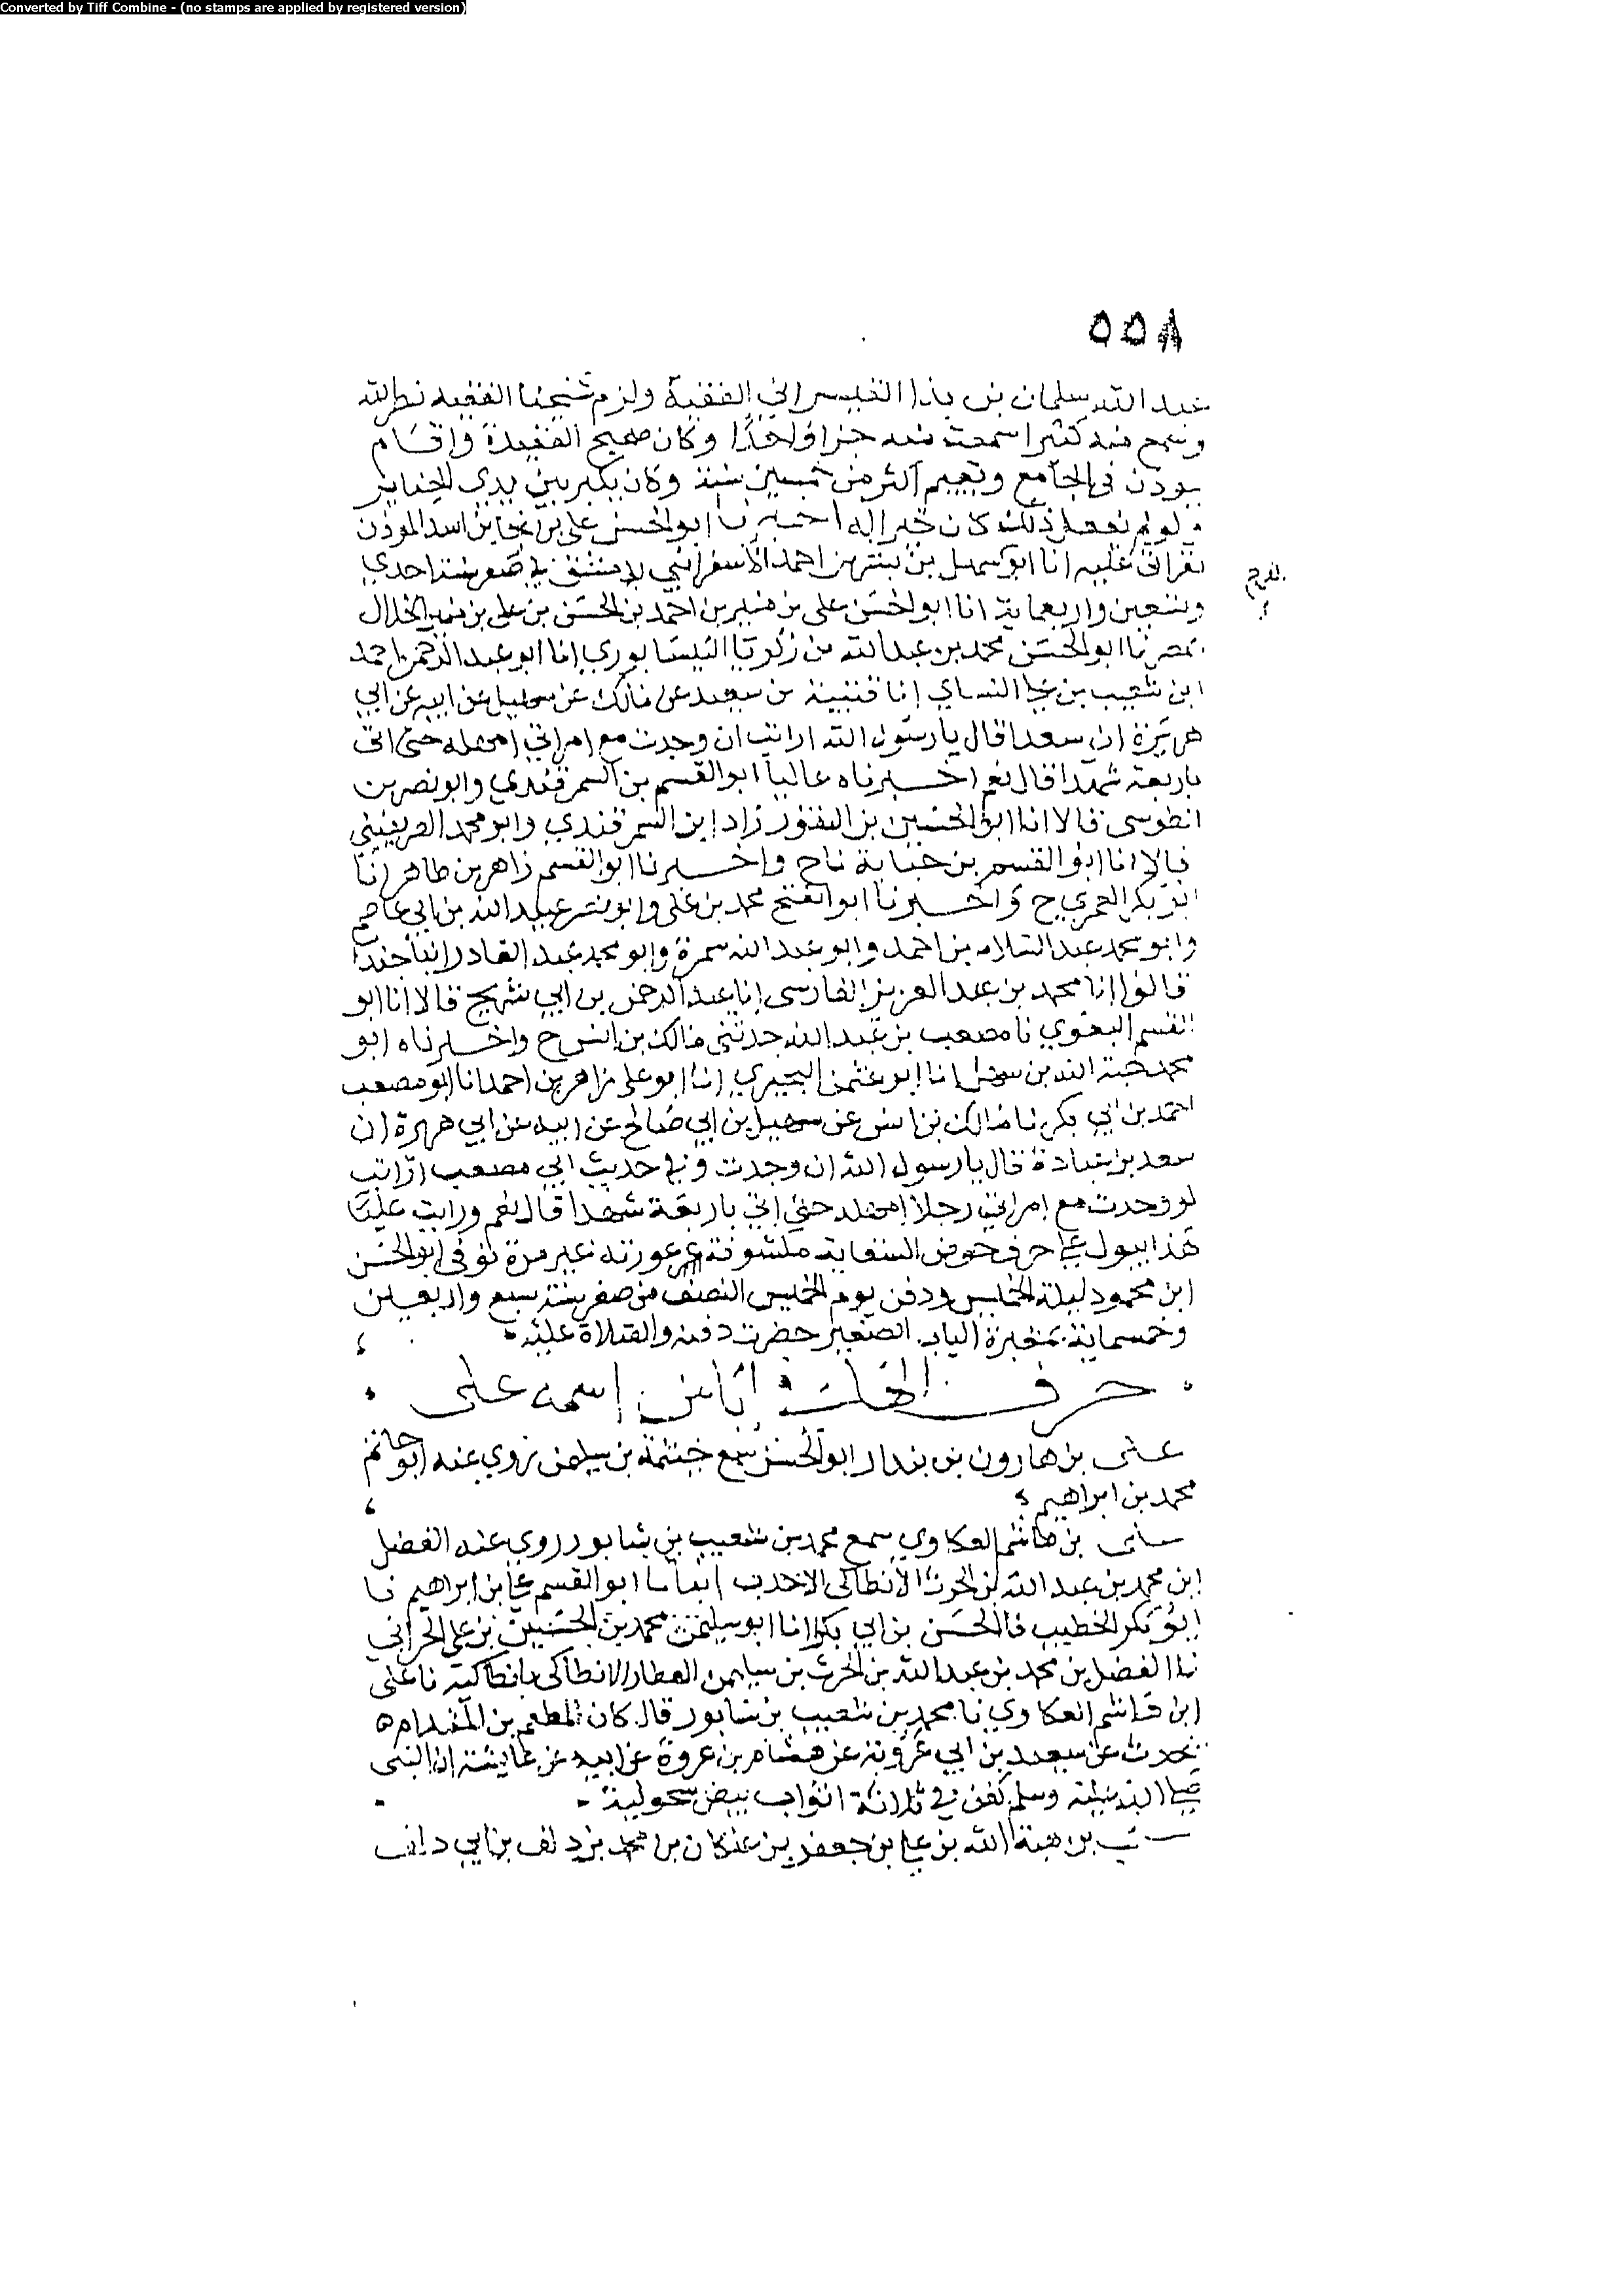 Converted by Tiff Combine - (no stamps are applied by registered version)
٥٥٨
عبد الله سلمان بن بذا الفقيه ولزم شيخنا الفقيه نصر الله
وسمع منه كثيرا سمعت منه جزا واحدا وكان صحيح العقيدة واقام
يوذن في الجامع ويقيم اكثر من خمسين سنة وكان يكبر بين يدي الجنايز
ولو لم يفعل ذلك كان خيرا له اخبرنا ابو الحسن علي بن نجا بن اسد الموذن
بقراتي عليه انا ابو سهل بن بشر بن احمد الاسفرايني بدمشق في صفر سنة احدي
وتسعين واربعماية انا ابو الحسن علي بن منير بن احمد بن الحسن بن علي بن منير الخلال
بمصر نا ابو الحسن محمد بن عبد الله بن زكريا النيسابوري انا ابو عبد الرحمن احمد
ابن شعيب بن علي النساي انا قتيبة بن سعيد عن مالك عن سهيل عن ابيه عن ابي
هريرة ان سعدا قال يا رسول الله ارايت ان وجدت مع امراتي امهله حتى اتي
باربعة شهدا قال نعم اخبرناه عاليا ابو القسم بن السمرقندي وابو نصر بن
الطوسي قالا انا ابو الحسين بن النقور زاد ابن السمرقندي وابو محمد الصريفيني
قالا انا ابو القسم بن حبابة نا ح واخبرنا ابو القسم زاهر بن طاهر انا
ابو بكر العمري ح واخبرنا ابو الفتح محمد بن علي وابو نصر عبيد الله بن ابي عاصم
وابو محمد عبد السلام بن احمد وابو عبد الله سمرة وابو محمد عبد القادر ابنا جندب
قالوا انا محمد بن عبد العزيز الفارسي انا عبد الرحمن بن ابي شريح قالا انا ابو
القسم البغوي نا مصعب بن عبد الله حدثني مالك بن انس ح واخبرناه ابو
محمد هبة الله بن سهل انا ابو عثمن البحيري انا ابو علي زاهر بن احمد انا ابو مصعب
احمد بن ابي بكر نا مالك بن انس عن سهيل بن ابي صالح عن ابيه عن ابي هريرة ان
سعد بن عبادة قال يا رسول الله ان وجدت وفي حديث ابي مصعب ارايت
لو وجدت مع امراتي رجلا امهله حتى اتي باربعة شهدا قال نعم ورايت عليا
هذا يبول على حرف حوض السقاية مكشوفة عورته غير مرة توفى ابو الحسن
ابن محمود ليلة الخميس ودفن يوم الخميس النصف من صفر سنة سبع واربعين
وخمسماية بمقبرة الباب الصغير حضرت دفنه والصلاة عليه
حرف الهاء في اباء من اسمه على
على بن هارون بن بندار ابو الحسن سمع خيثمة بن سليمن روي عنه ابو حاتم
محمد بن ابراهيم
على بن هاشم العكاوي سمع محمد بن شعيب بن شابور روي عنه الفضل
ابن محمد بن عبد الله بن الحرث الانطاكى الاحدب انبانا ابو القسم علي بن ابراهيم نا
ابو بكر الخطيب نا الحسن بن ابي بكر انا ابو سليمن محمد بن الحسين بن علي الحراني
نا الفضل بن محمد بن عبد الله بن الحرث بن سليمن العطار الانطاكى بانطاكية نا على
ابن هاشم العكاوي نا محمد بن شعيب بن شابور قال كان المطعم بن المقدام
يحدث عن سعيد بن ابي عروبة عن هشام بن عروة عن ابيه عن عايشة ان النبى
صلى الله عليه وسلم كفن في ثلاثة اثواب بيض سحولية
على بن هبة الله بن علي بن جعفر بن علكان بن محمد بن دلف بن ابي دلف